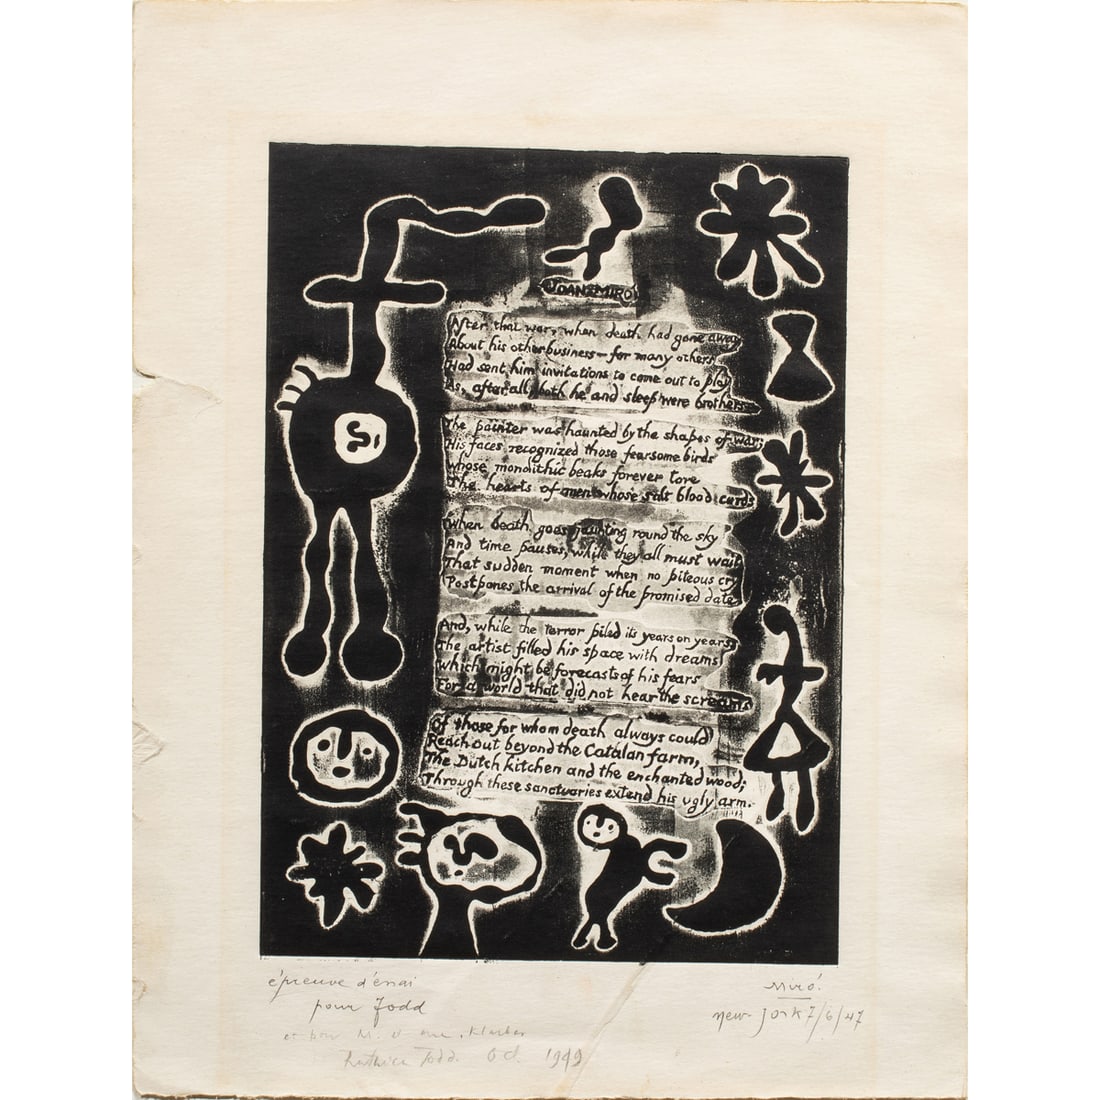 JOAN MIRO
After that war, when death had gone away
About his other business—for many others
Had sent him invitations to come out to play
As, after all, both he and sleep were brothers—
The painter was haunted by the shapes of war;
His faces recognized those fearsome birds
Whose monolithic beaks forever tore
The hearts of men whose salt blood curds
When death goes jaunting round the sky
And time pauses, while they all must wait
That sudden moment when no piteous cry
Postpones the arrival of the promised date
And, while the terror piled its years on years
The artist filled his space with dreams
Which might be forecasts of his fears
For a world that did not hear the screams
Of those for whom death always could
Reach out beyond the Catalan farm,
The Dutch kitchen and the enchanted wood;
Through these sanctuaries extend his ugly arm.
épreuve d'essai
pour Todd
et pour M. et Klarber
Ruthven Todd. Oct. 1949
Miró.
New-York 7/6/47